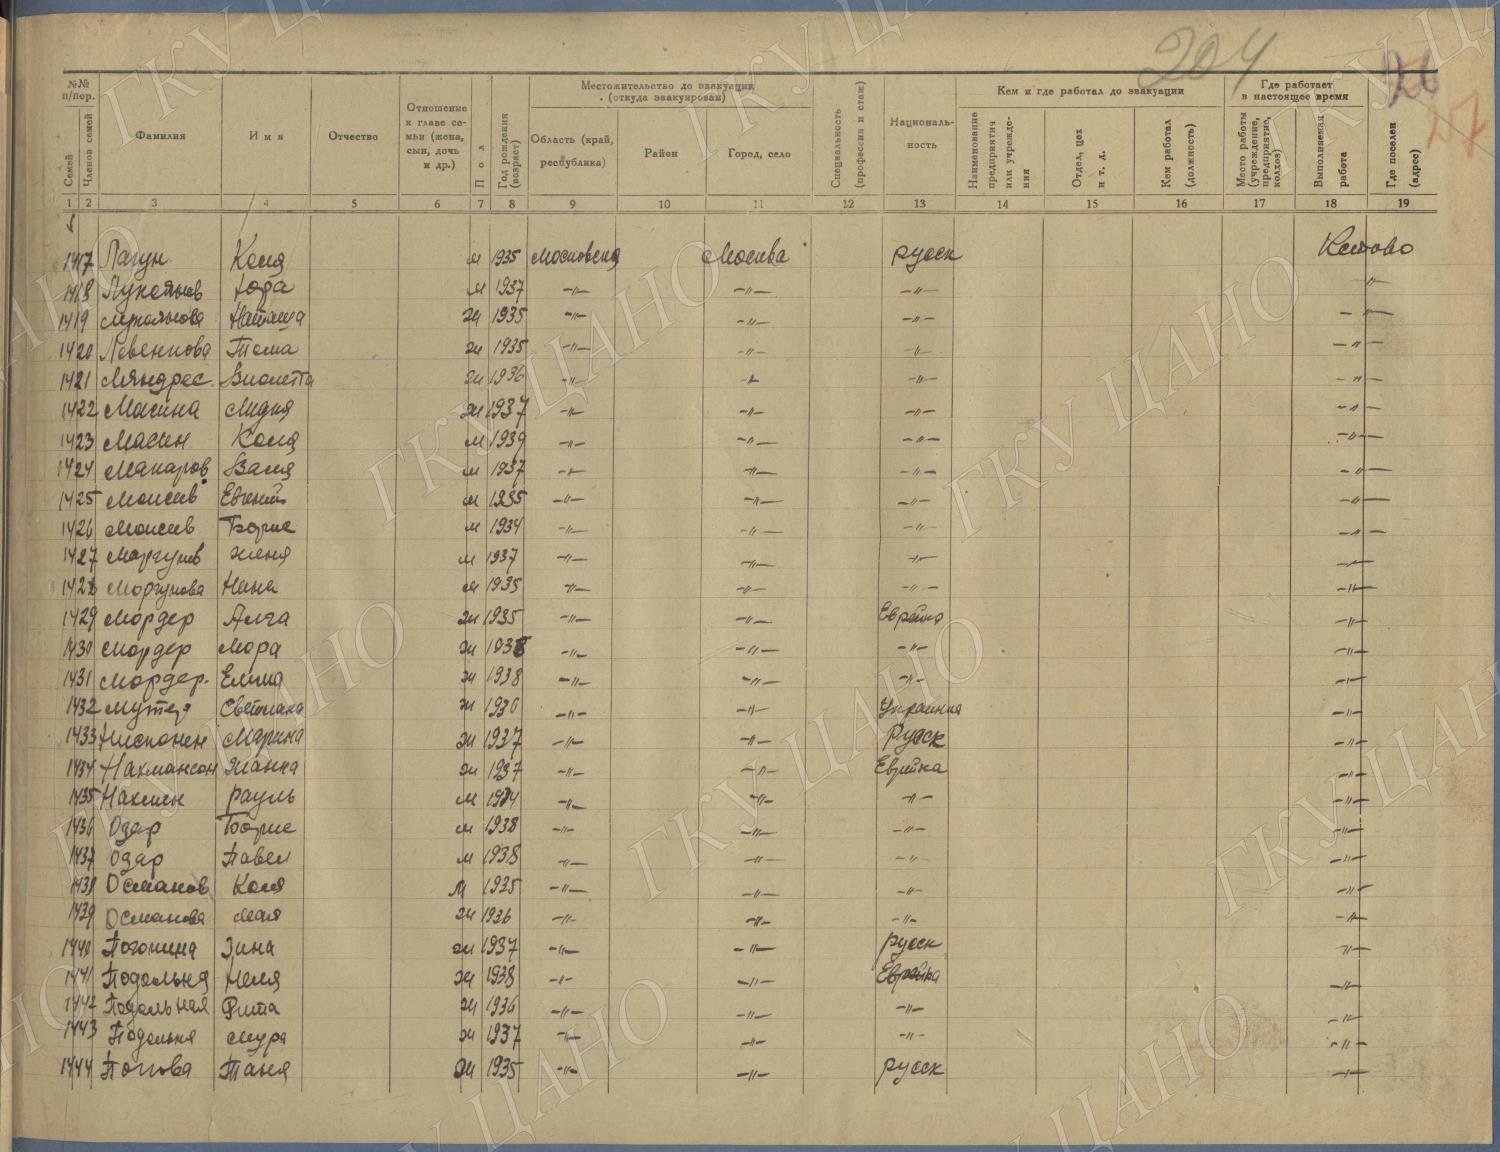 204
26
27
№№ п/пор.
Семей
Членов семей
Фамилия
Имя
Отчество
Отношение к главе семьи (жена, сын, дочь и др.)
Пол
Год рождения (возраст)
Местожительство до эвакуации (откуда эвакуирован)
Область (край, республика)
Район
Город, село
Специальность (профессия и стаж)
Националь-
ность
Кем и где работал до эвакуации
Наименование предприятия или учреждения
Отдел, цех и т. д.
Кем работал (должность)
Где работает в настоящее время
Место работы (учреждение, предприятие, колхоз)
Выполняемая работа
Где поселен (адрес)
1 2 3 4 5 6 7 8 9 10 11 12 13 14 15 16 17 18 19
1417 Лагун Коля м 1935 Московская Москва русск Кстово
1418 Лукьянов Юра м 1937 -"- -"- -"- -"-
1419 Наташа ж 1935 -"- -"- -"- -"-
1420 Левенкова Тома ж 1935 -"- -"- -"- -"-
1421 Мяндрес Виолетта ж 1936 -"- -"- -"- -"-
1422 Масина Лидия ж 1937 -"- -"- -"- -"-
1423 Масин Коля м 1939 -"- -"- -"- -"-
1424 Макаров Вася м 1937 -"- -"- -"- -"-
1425 Моисеев Евгений м 1935 -"- -"- -"- -"-
1426 Моисеев Борис м 1934 -"- -"- -"- -"-
1427 Моргунов Женя м 1937 -"- -"- -"- -"-
1428 Моргунова Нина м 1935 -"- -"- -"- -"-
1429 Мордер ж 1935 -"- -"- Еврейка -"-
1430 Мордер Мора ж 1938 -"- -"- -"- -"-
1431 Мордер Елина ж 1938 -"- -"- -"- -"-
1432 Светлана ж 1936 -"- -"- Украинка -"-
1433 Нисконен Марина ж 1937 -"- -"- Русск -"-
1434 Нахмансон Жанна ж 1937 -"- -"- Еврейка -"-
1435 Рауль м 1934 -"- -"- -"- -"-
1436 Одар Борис м 1938 -"- -"- -"- -"-
1437 Одар Павел м 1938 -"- -"- -"- -"-
1438 Османов Коля м 1935 -"- -"- -"- -"-
1439 Османова Мая ж 1936 -"- -"- -"- -"-
1440 Погонина Зина ж 1937 -"- -"- русск -"-
1441 Подольная Неля ж 1938 -"- -"- Еврейка -"-
1442 Подольная Рита ж 1936 -"- -"- -"- -"-
1443 Мура ж 1937 -"- -"- -"- -"-
1444 Попова Таня ж 1935 -"- -"- русск -"-
ГКУ ЦАНО